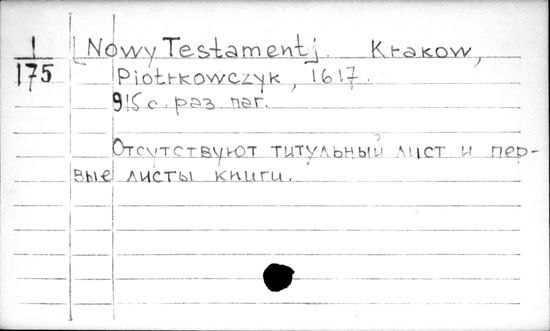 1/175
[Nowy Testament]. Krakow,
Piotrkowczyk, 1617.
915 с. раз. паг.
Отсутствуют титульный лист и пер-
вые листы книги.